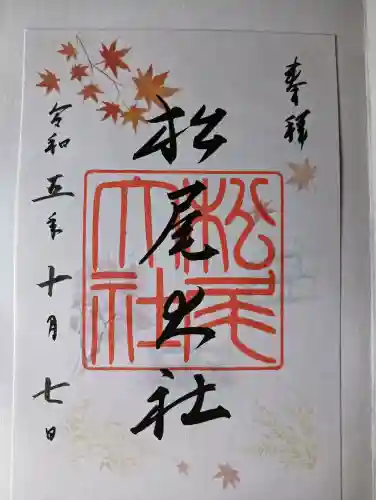 奉拝
松尾大社
松尾大社
令和五年十月七日